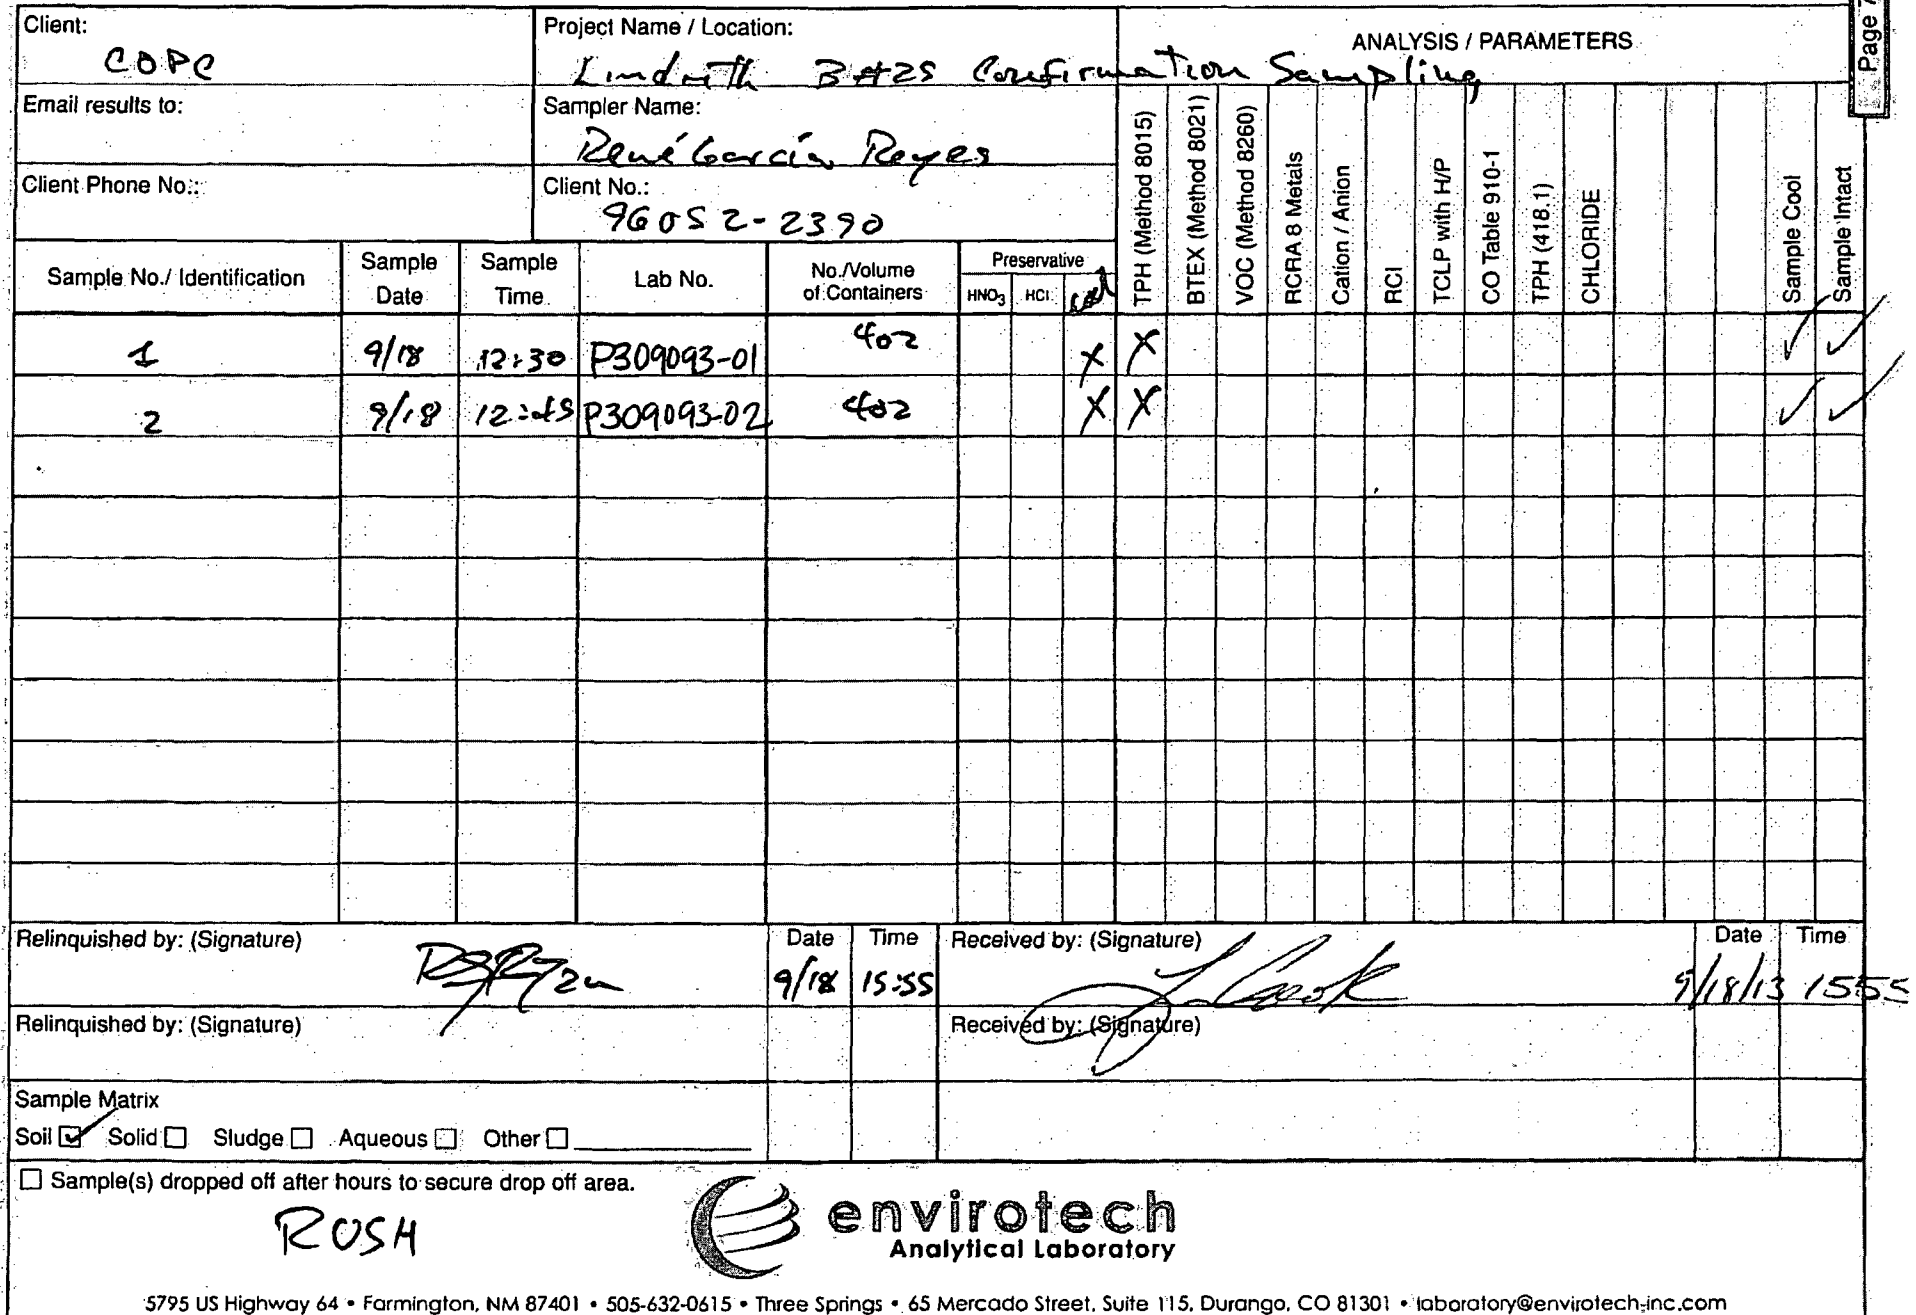 Page 7
Client:
COPC
Project Name / Location:
Lindrith B #25 Confirmation Sampling
ANALYSIS / PARAMETERS
Email results to:
Sampler Name:
René García Reyes
Client Phone No.:
Client No.:
96052-2390
Sample No./ Identification
Sample Date
Sample Time
Lab No.
No./Volume of Containers
Preservative
HNO3
HCl
cool
TPH (Method 8015)
BTEX (Method 8021)
VOC (Method 8260)
RCRA 8 Metals
Cation / Anion
RCI
TCLP with H/P
CO Table 910-1
TPH (418.1)
CHLORIDE
Sample Cool
Sample Intact
1 9/18 12:30 P309093-01 4oz X X ✓ ✓
2 9/18 12:45 P309093-02 4oz X X ✓ ✓
Relinquished by: (Signature)
Date
9/18
Time
15:55
Received by: (Signature)
Cook
Date
9/18/13
Time
1555
Relinquished by: (Signature)
Received by: (Signature)
Sample Matrix
Soil ☑ Solid ☐ Sludge ☐ Aqueous ☐ Other ☐
☐ Sample(s) dropped off after hours to secure drop off area.
RUSH
envirotech
Analytical Laboratory
5795 US Highway 64 • Farmington, NM 87401 • 505-632-0615 • Three Springs • 65 Mercado Street, Suite 115, Durango, CO 81301 • laboratory@envirotech-inc.com